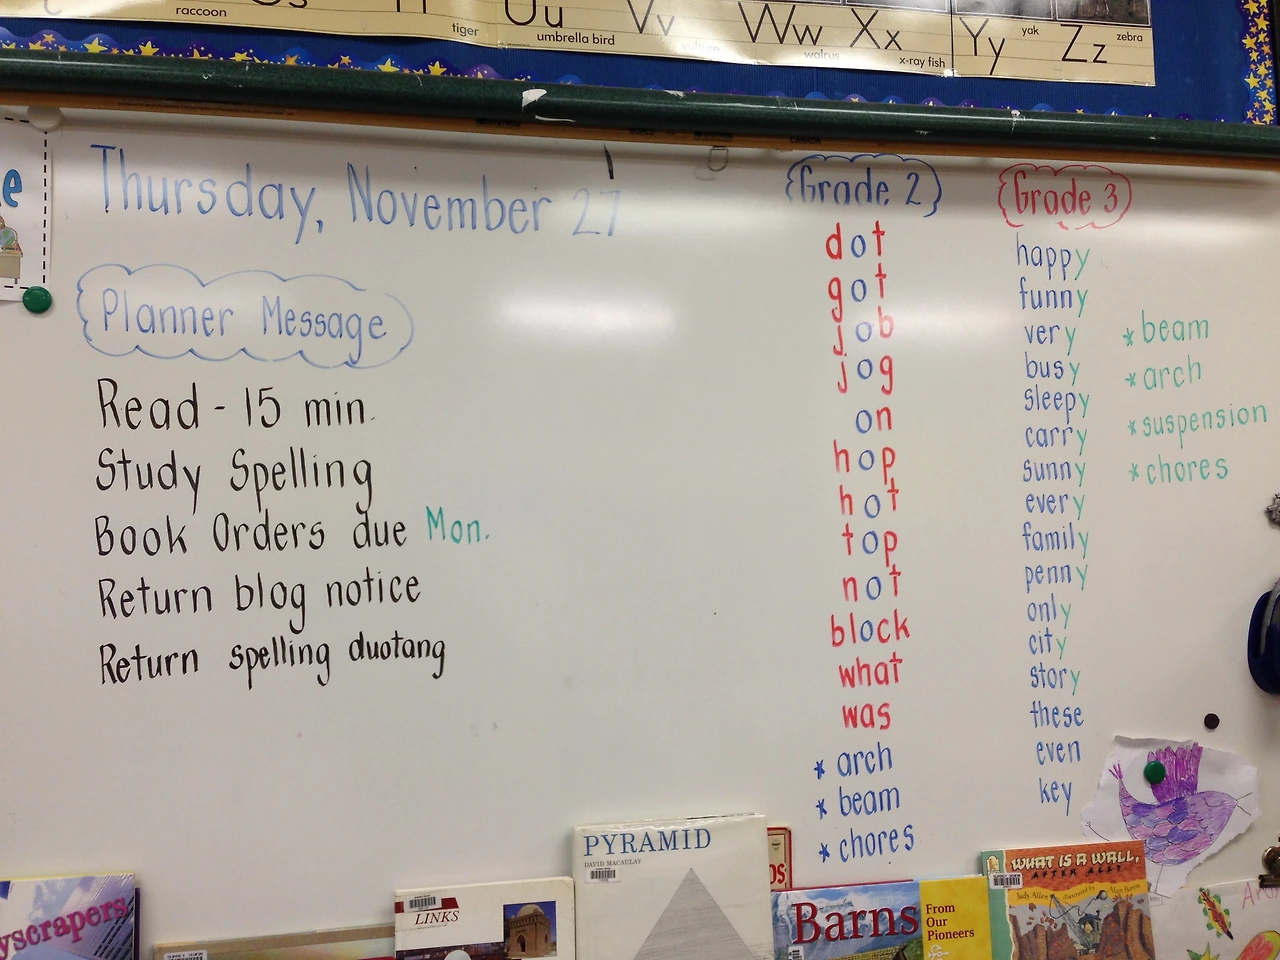 raccoon
tiger
Uu
umbrella bird
Vv
vulture
Ww
walrus
Xx
x-ray fish
Yy
yak
Zz
zebra
Thursday, November 27
Planner Message
Read - 15 min.
Study Spelling
Book Orders due Mon.
Return blog notice
Return spelling duotang
Grade 2
dot
got
job
jog
on
hop
hot
top
not
block
what
was
* arch
* beam
* chores
Grade 3
happy
funny
very
busy
sleepy
carry
sunny
every
family
penny
only
city
story
these
even
key
* beam
* arch
* suspension
* chores
yscrapers
LINKS
PYRAMID
DAVID MACAULAY
Barns
From
Our
Pioneers
WHAT IS A WALL,
AFTER ALL?
Judy Allen